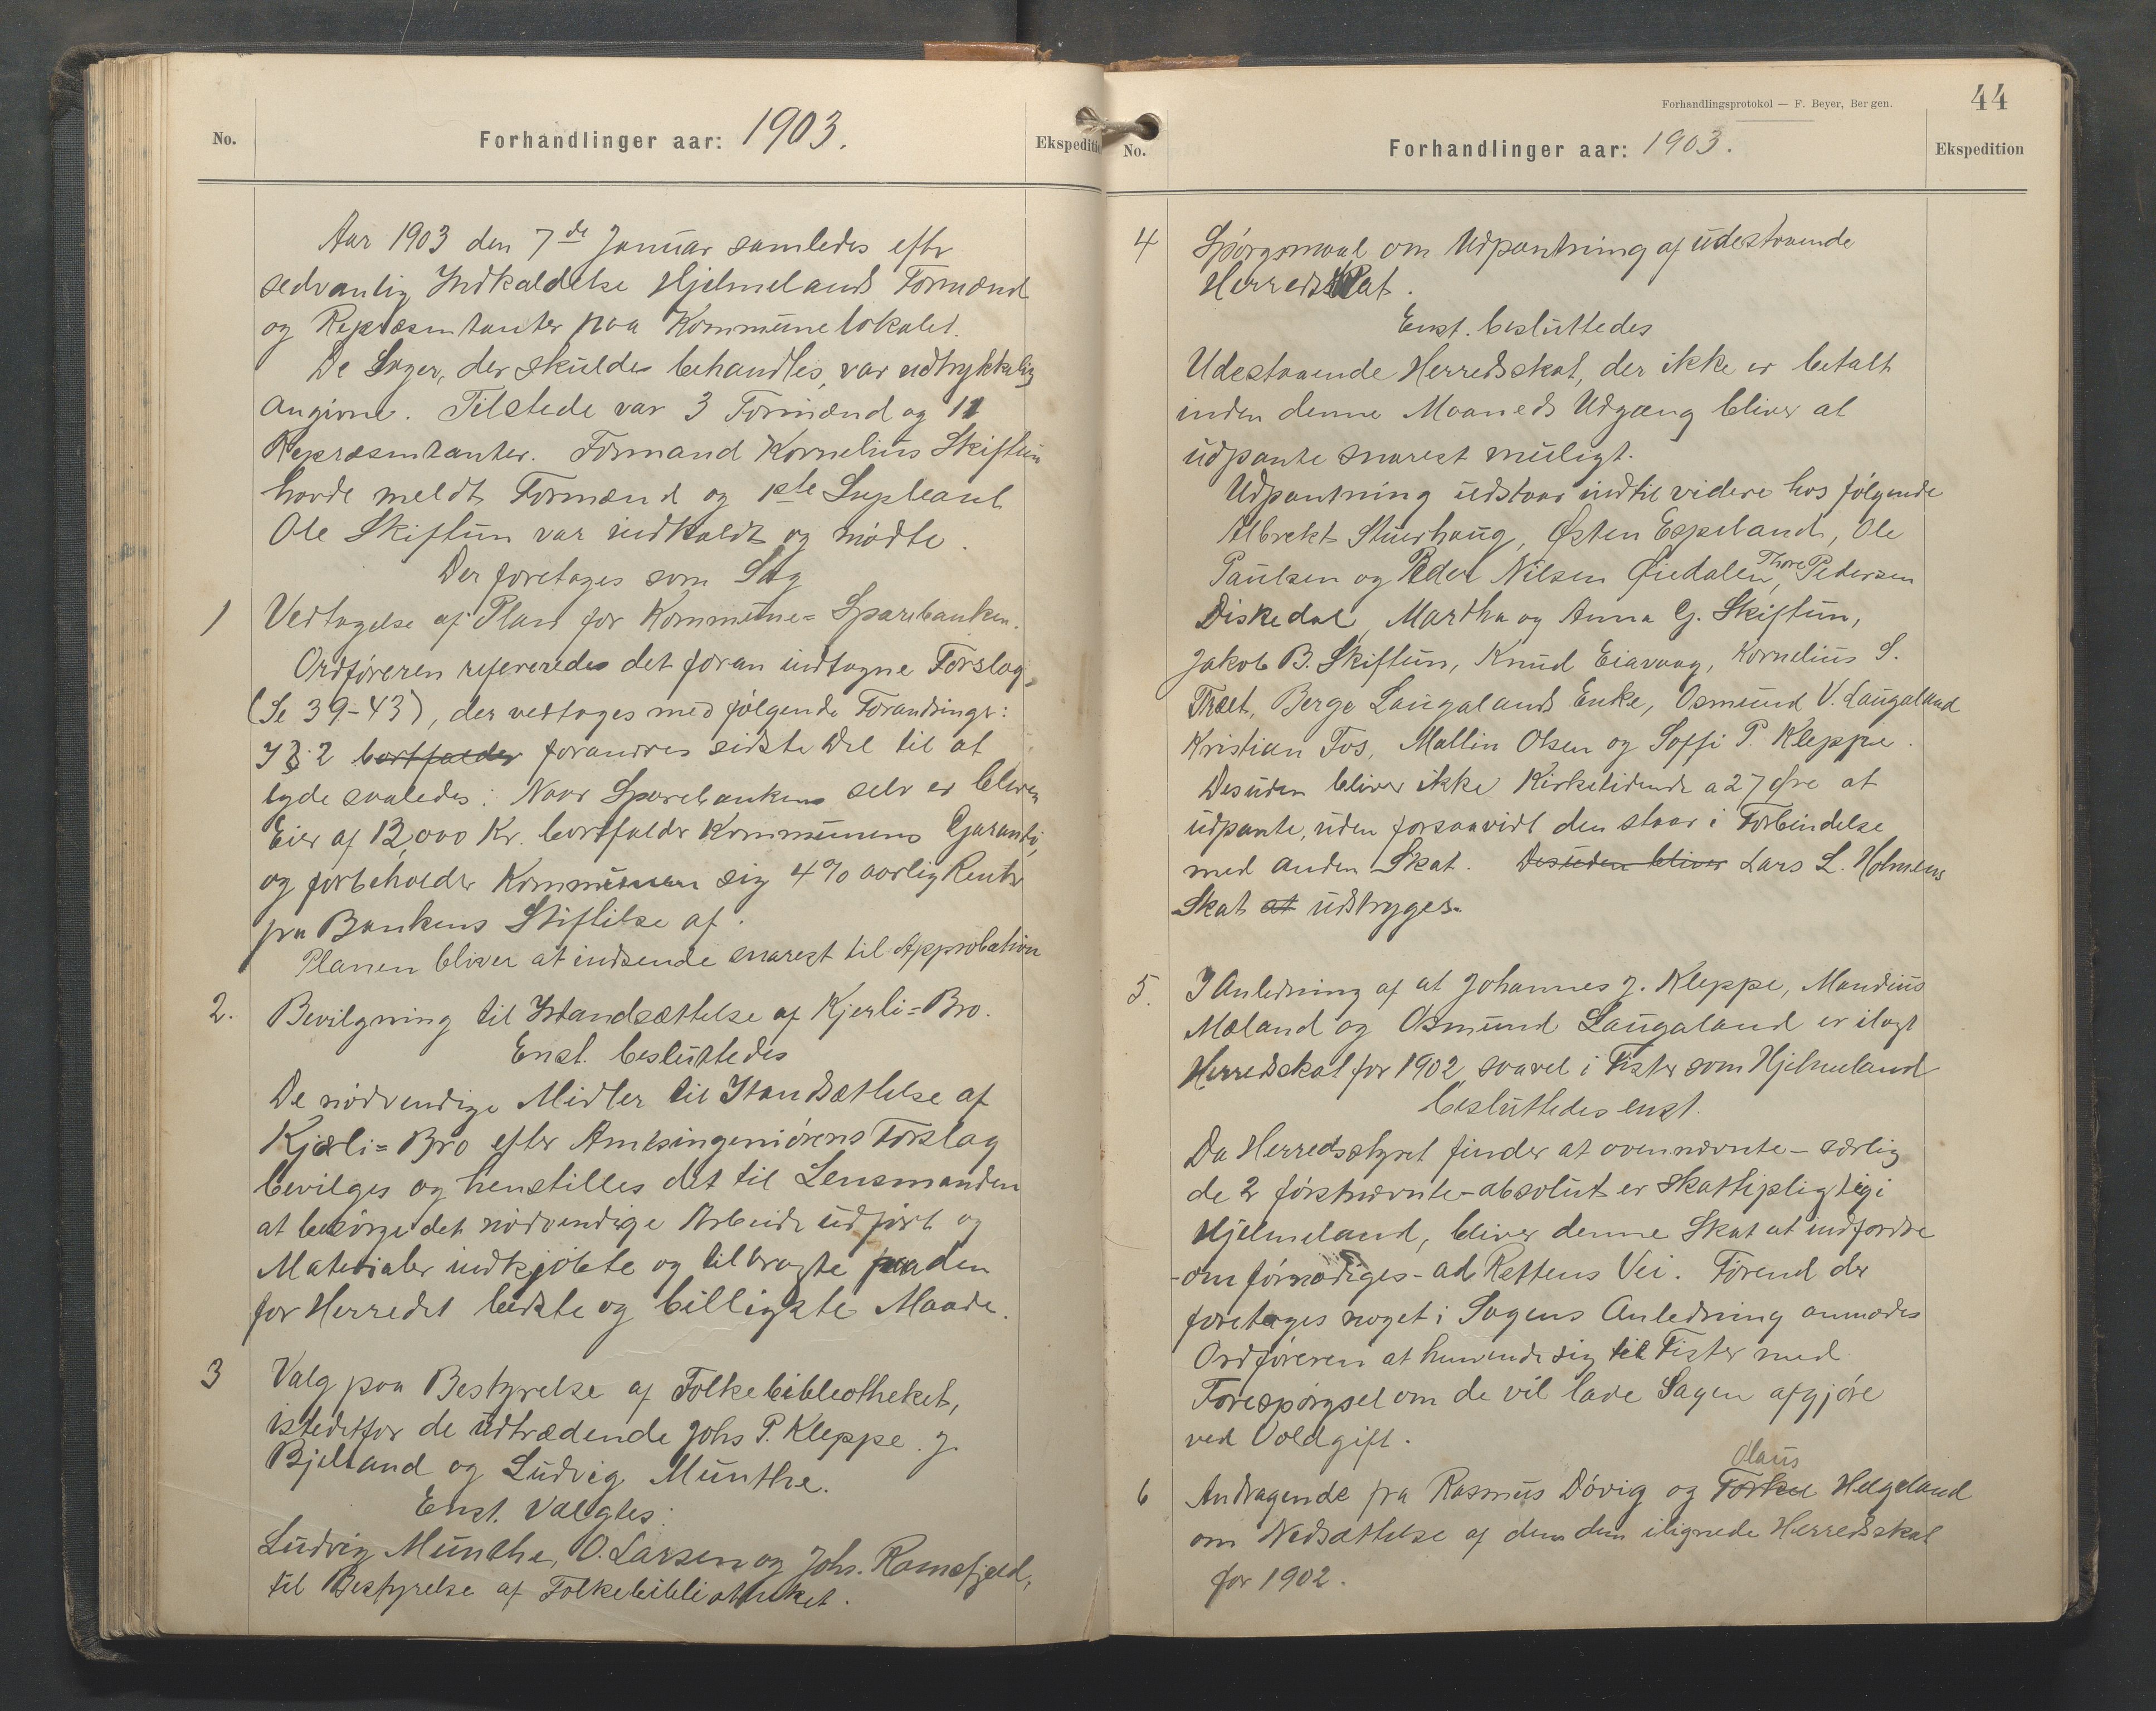 No.
Forhandlinger aar: 1903.
Ekspeditio
Aar 1903 den 7de Januar samledes efter
sedvanlig Indkaldelse Hjelmelands Formænd
og Repræsentanter paa Kommunelokalet.
De Sager, der skuldes behandles, var udtrykkelig
angivne. Tilstede var 3 Formænd og 11
Repræsentanter. Formand Kornelius Skiftun
havde meldt Formænd og 1ste Supleant
Ole Skiftun var indkaldt og mødte.
Der foretages som Sag
1 Vedtagelse af Plan for Kommune=Sparebanken.
Ordføreren refereredes det foran indtagne Forslag,
(Se 39-43), der vedtages med følgende Forandringer:
I § 2 bortfalder forandres sidste Del til at
lyde saaledes: Naar Sparebankens selv er bleven
Eier af 12,000 Kr. bortfalder Kommunens Garanti,
og forbeholder Kommunen sig 4% aarlig Rente
fra Bankens Stiftelse af.
Planen bliver at indsende snarest til Approbation
2. Bevilgning til Istandsættelse af Kjerli=Bro.
Enst. besluttedes
De nødvendige Midler til Istandsættelse af
Kjærli=Bro efter Amtsingeniørens Forslag
bevilges og henstilles det til Lensmanden
at besørge det nødvendige Arbeide udført og
Materialer indkjøbte og tilbragte paa den
for Herredet bedste og billigste Maade.
3 Valg paa Bestyrelse af Folkebibliotheket,
istedetfor de udtrædende Johs P. Kleppe. J.
Bjelland og Ludvig Munthe.
Enst. Valgtes:
Ludvig Munthe, O. Larsen og Johs. Ramsfjeld,
til Bestyrelse af Folkebibliotheket.
Forhandlingsprotokol — F. Beyer, Bergen.
44
No.
Forhandlinger aar: 1903.
Ekspedition
4 Spørgsmaal om Udpantning af udestaaende
Herredsskat.
Enst. besluttedes
Udestaaende Herredsskat, der ikke er betalt
inden denne Maaneds Udgang bliver at
udpante snarest muligt.
Udpantning udstaar indtil videre hos følgende
Albrekt Stuerhaug, Østen Espeland, Ole
Paulsen og Peder Nilsen Øiedalen, Thore Pedersen
Diskedal, Martha og Anna G. Skiftun,
Jakob B. Skiftun, Knud Eiavaag, Kornelius S.
Træt, Berge Laugalands Enke, Osmund V. Laugaland
Kristian Fos, Mallin Olsen og Soffi P. Kleppe.
Desuden bliver ikke Kirketidende a 27 Øre at
udpante, uden forsaavidt den staar i Forbindelse
med anden Skat. Desuden bliver Lars L. Holmens
Skat at udstryges.
5. I Anledning af at Johannes J. Kleppe, Mandius
Mæland og Osmund Laugaland er ilagt
Herredskat for 1902, saavel i Fister som Hjelmeland
besluttedes enst.
Da Herredsstyret finder at ovennævnte - særlig
de 2 førstnævnte - absolut er skattepligtig i
Hjelmeland, bliver denne Skat at indfordre
- om fornødiges - ad Rettens Vei. Førend der
foretages noget i Sagens Anledning anmodes
Ordføreren at henvende sig til Fister med
Forespørgsel om de vil lade Sagen afgjøre
ved Voldgift.
Olaus
6 Andragende fra Rasmus Døvig og Torkel Helgeland
om Nedsættelse af den dem ilignede Herredsskat
for 1902.